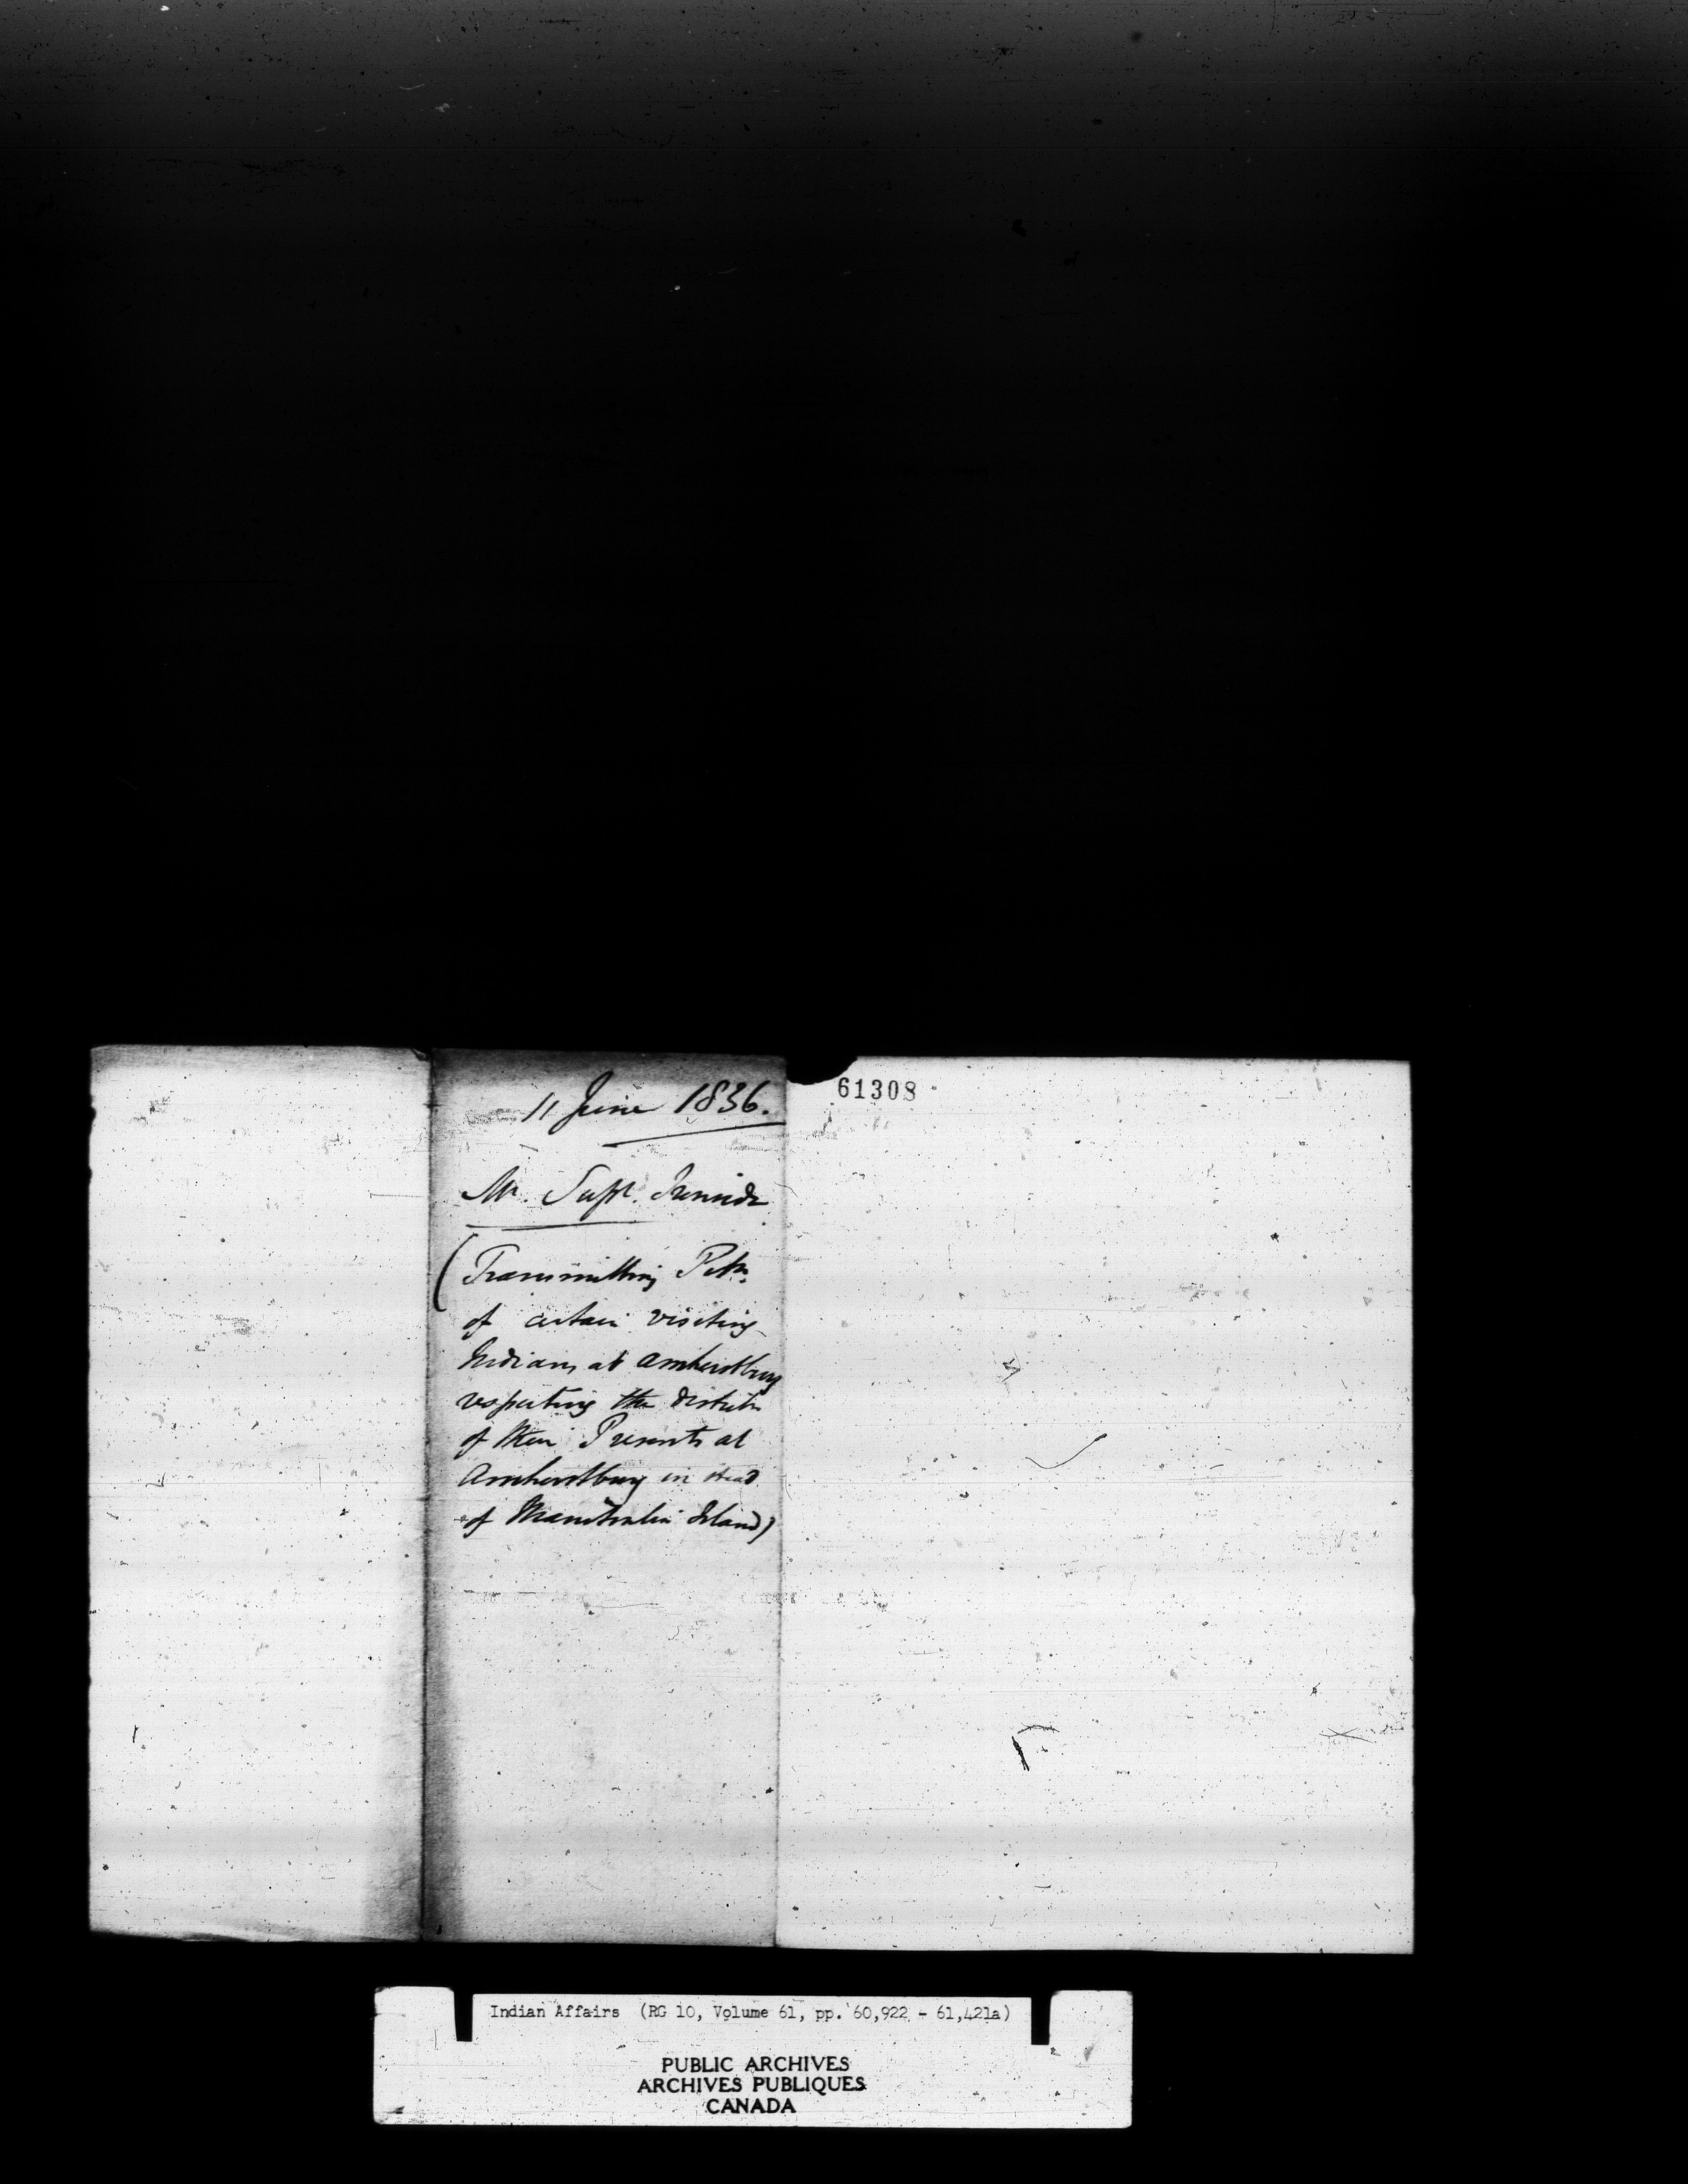 11 June 1836.
61308
Mr. Supt.
(Transmitting Petn.
of certain visiting
Indians at Amherstburg
respecting the distributn
of their Presents at
Amherstburg in stead
of Manitoulin Island)
Indian Affairs (RG 10, Volume 61, pp. 60,922 - 61,421a)
PUBLIC ARCHIVES
ARCHIVES PUBLIQUES
CANADA